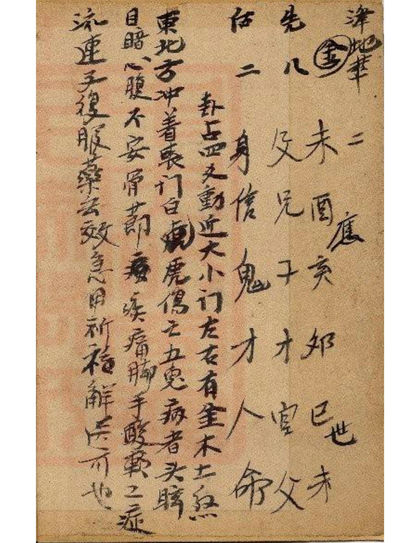 澤地萃 二 應 世
金 未酉亥卯巳未
父兄子才官父
二 身信鬼才人命
卦占四爻動近大小门左右有金木土煞
東北方冲着喪门白虎傷亡五鬼病者头眩
目暗心腹不安骨節疾痛脚手酸軟之症
流連反復服藥无效急用祈福解送可也